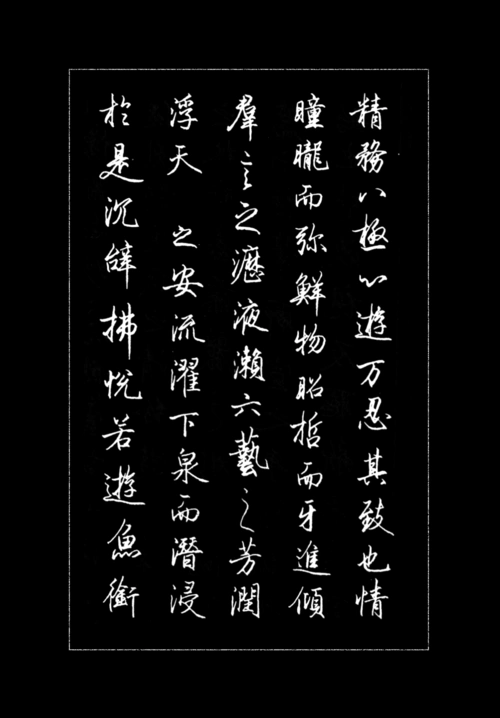 精務八極心遊万忍其致也情
瞳矓而弥鮮物昭晢而牙進傾
羣言之瀝液瀨六藝之芳潤
浮天 之安流濯下泉而潛浸
於是沉辭拂悅若遊魚銜